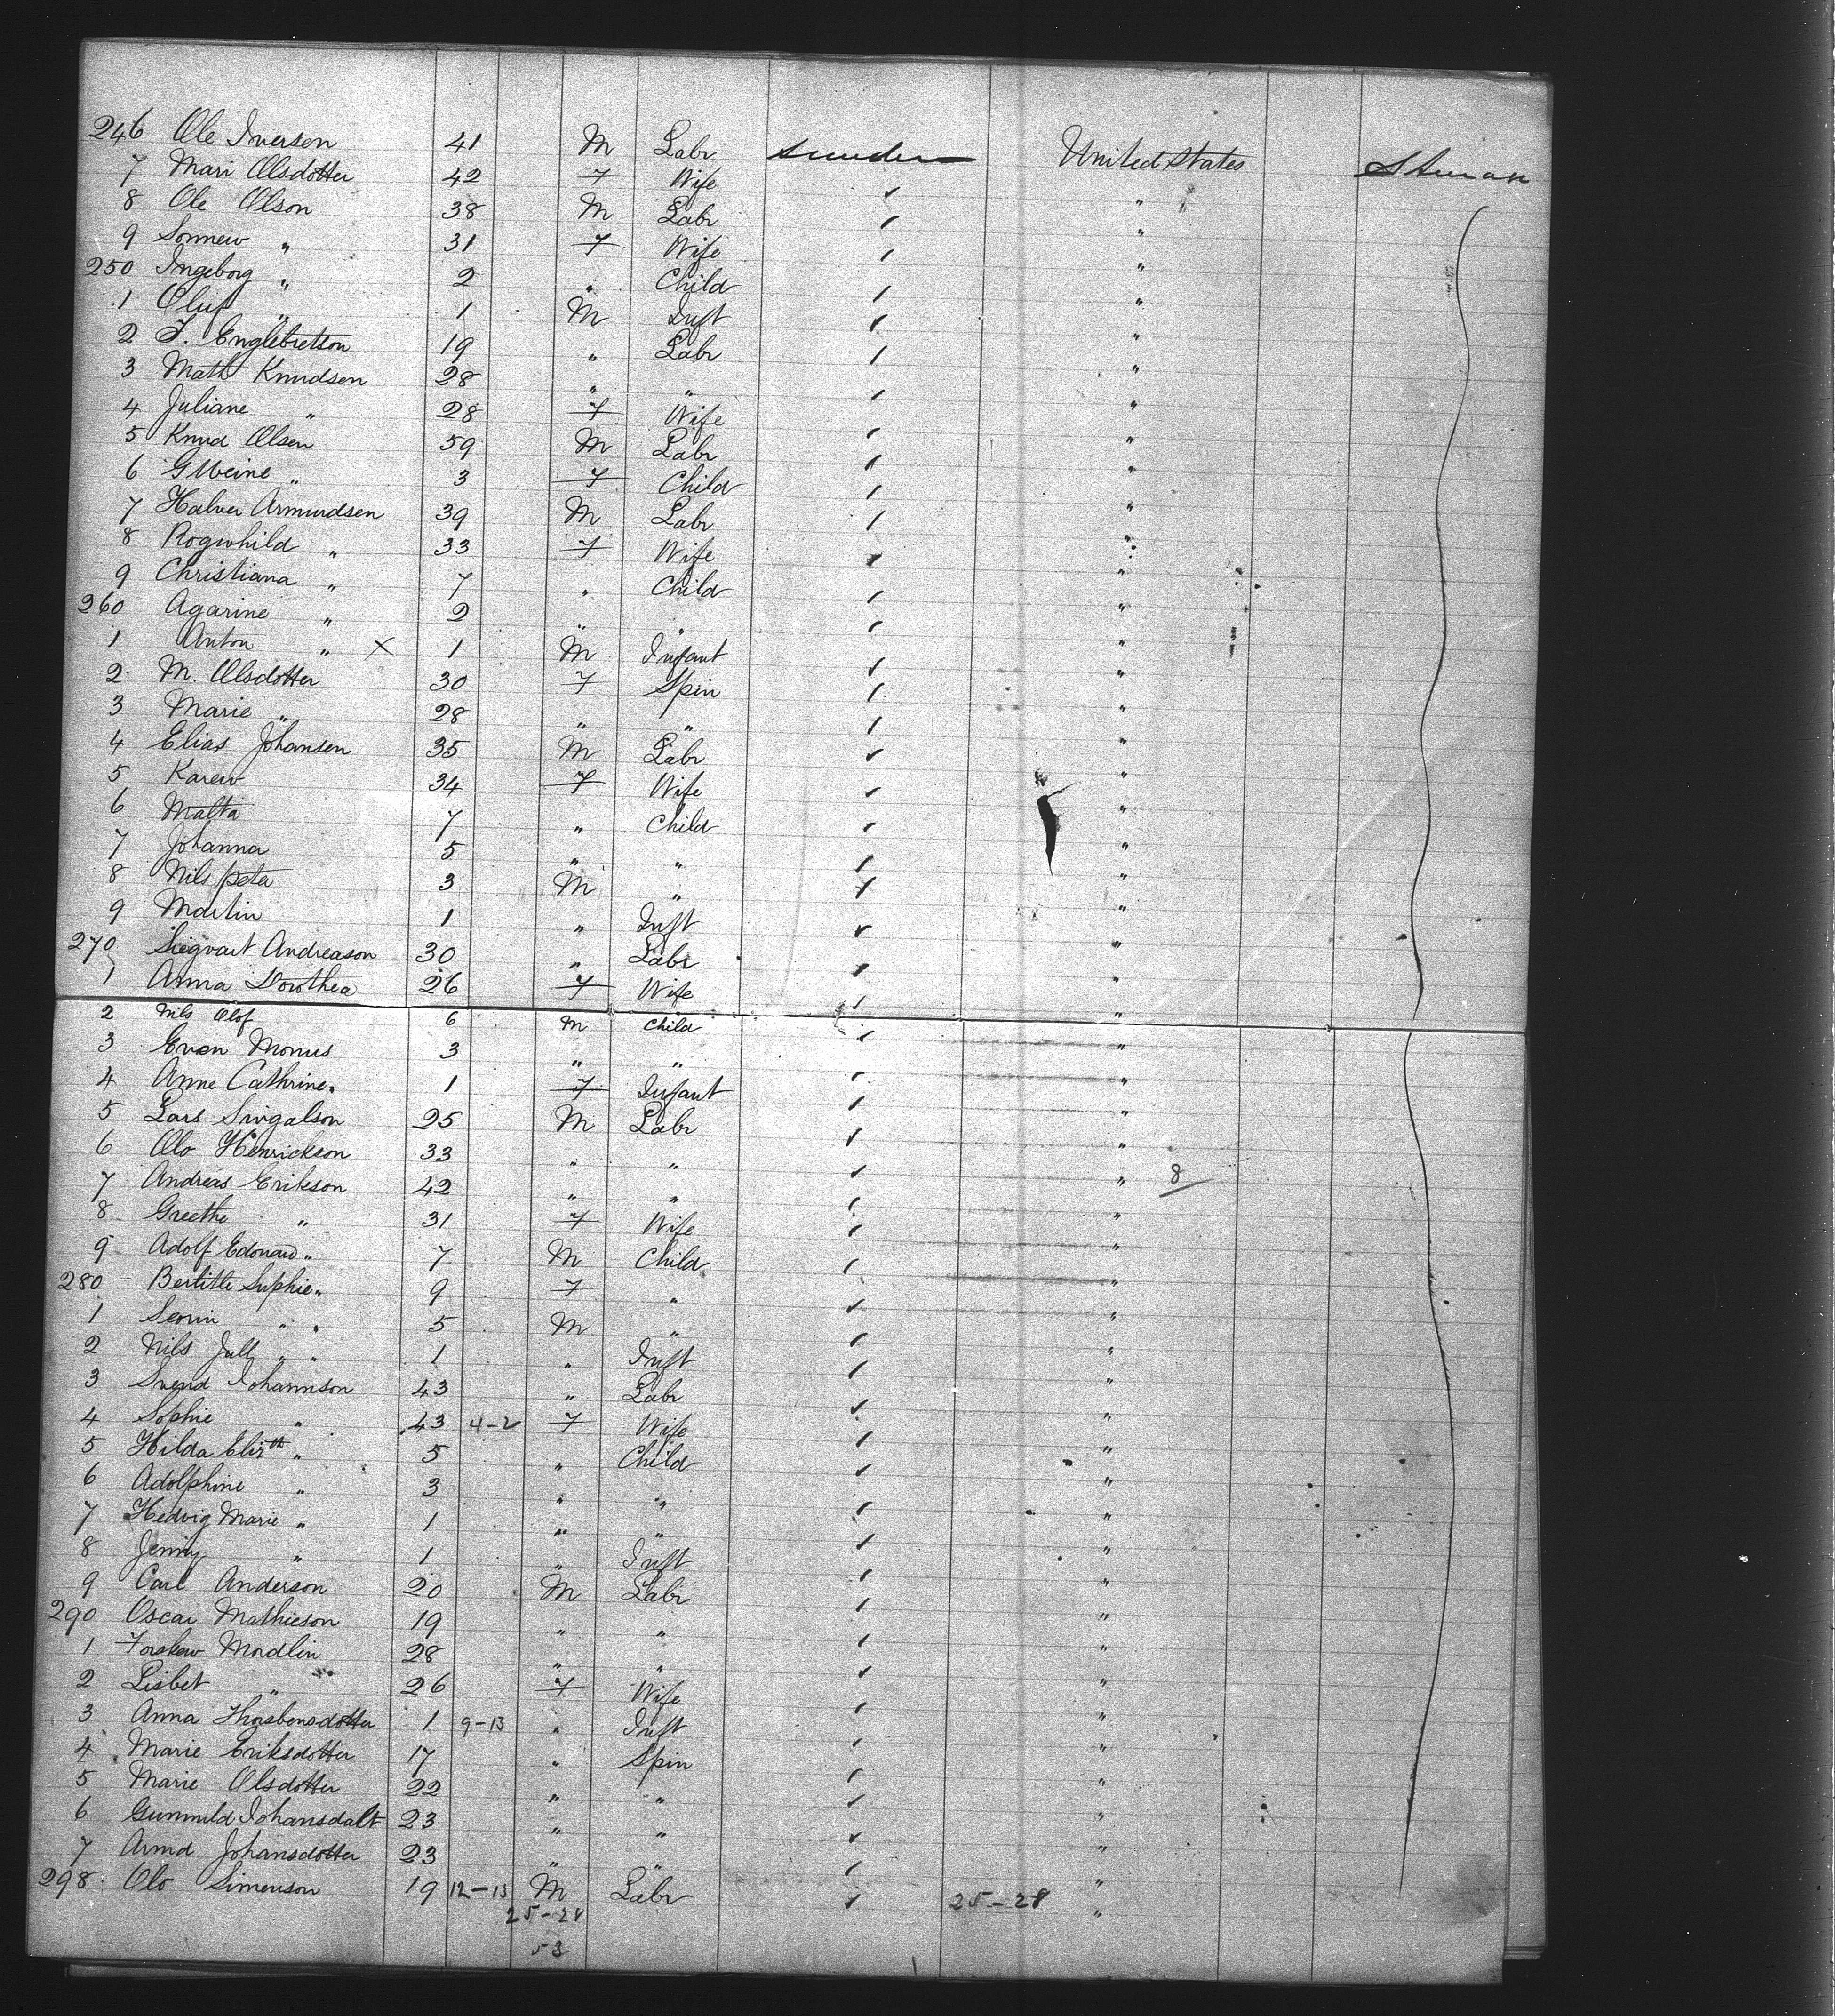 246 Ole Iversen 41 M Labr Sweden United States Steerage
7 Mari Olsdotter 42 F Wife ✓ "
8 Ole Olson 38 M Labr ✓ "
9 Sonnew " 31 F Wife ✓ "
250 Ingeborg " 2 " Child ✓ "
1 Oluf " 1 M Inft ✓ "
2 J. Englebretson 19 " Labr ✓ "
3 Math Knudsen 28 " " ✓ "
4 Juliane " 28 F Wife ✓ "
5 Knud Olsen 59 M Labr ✓ "
6 " 3 F Child ✓ "
7 Halver Armundsen 39 M Labr ✓ "
8 Rogwhild " 33 F Wife ✓ "
9 Christiana " 7 " Child ✓ "
260 Agarine " 2 " " ✓ "
1 Anton " X 1 M Infant ✓ "
2 M. Olsdotter 30 F Spin ✓ "
3 Marie " 28 " " ✓ "
4 Elias Johansen 35 M Labr ✓ "
5 Karew 34 F Wife ✓ "
6 Malta 7 " Child ✓ "
7 Johanna 5 " " ✓ "
8 Nils Peter 3 M " ✓ "
9 Martin 1 " Inft ✓ "
270 Siegvart Andreason 30 " Labr ✓ "
1 Anna Dorothea 26 F Wife ✓ "
2 Nils Olof 6 M Child ✓ "
3 Even Monus 3 " " ✓ "
4 Anne Cathrine " 1 F Infant ✓ "
5 Lars 25 M Labr ✓ "
6 Olo Henrickson 33 " " ✓ "
7 Andreas Erikson 42 " " ✓ " 8
8 Greethe " 31 F Wife ✓ "
9 Adolf Edouard " 7 M Child ✓ "
280 Bertitte Suphie " 9 F " ✓ "
1 Sevrin " " 5 M " ✓ "
2 Nils Jull " " 1 " Inft ✓ "
3 Svend Johannson 43 " Labr ✓ "
4 Sophie " 43 4-2 F Wife ✓ "
5 Hilda Elizth " 5 " Child ✓ "
6 Adolphine " 3 " " ✓ "
7 Hedvig Marie " 1 " " ✓ "
8 Jenny " 1 " Inft ✓ "
9 Carl Anderson 20 M Labr ✓ "
290 Oscar Mathieson 19 " " ✓ "
1 Mordlin 28 " " ✓ "
2 Lisbet " 26 F Wife ✓ "
3 Anna Thorbensdotter 1 9-13 " Inft ✓ "
4 Marie Eriksdotter 17 " Spin ✓ "
5 Marie Olsdotter 22 " " ✓ "
6 Gunnuld Johansdalt 23 " " ✓ "
7 Armd Johansdotter 23 " " ✓ "
298 Olo Simenson 19 12-13 M Labr ✓ 25-28 "
25-28
53